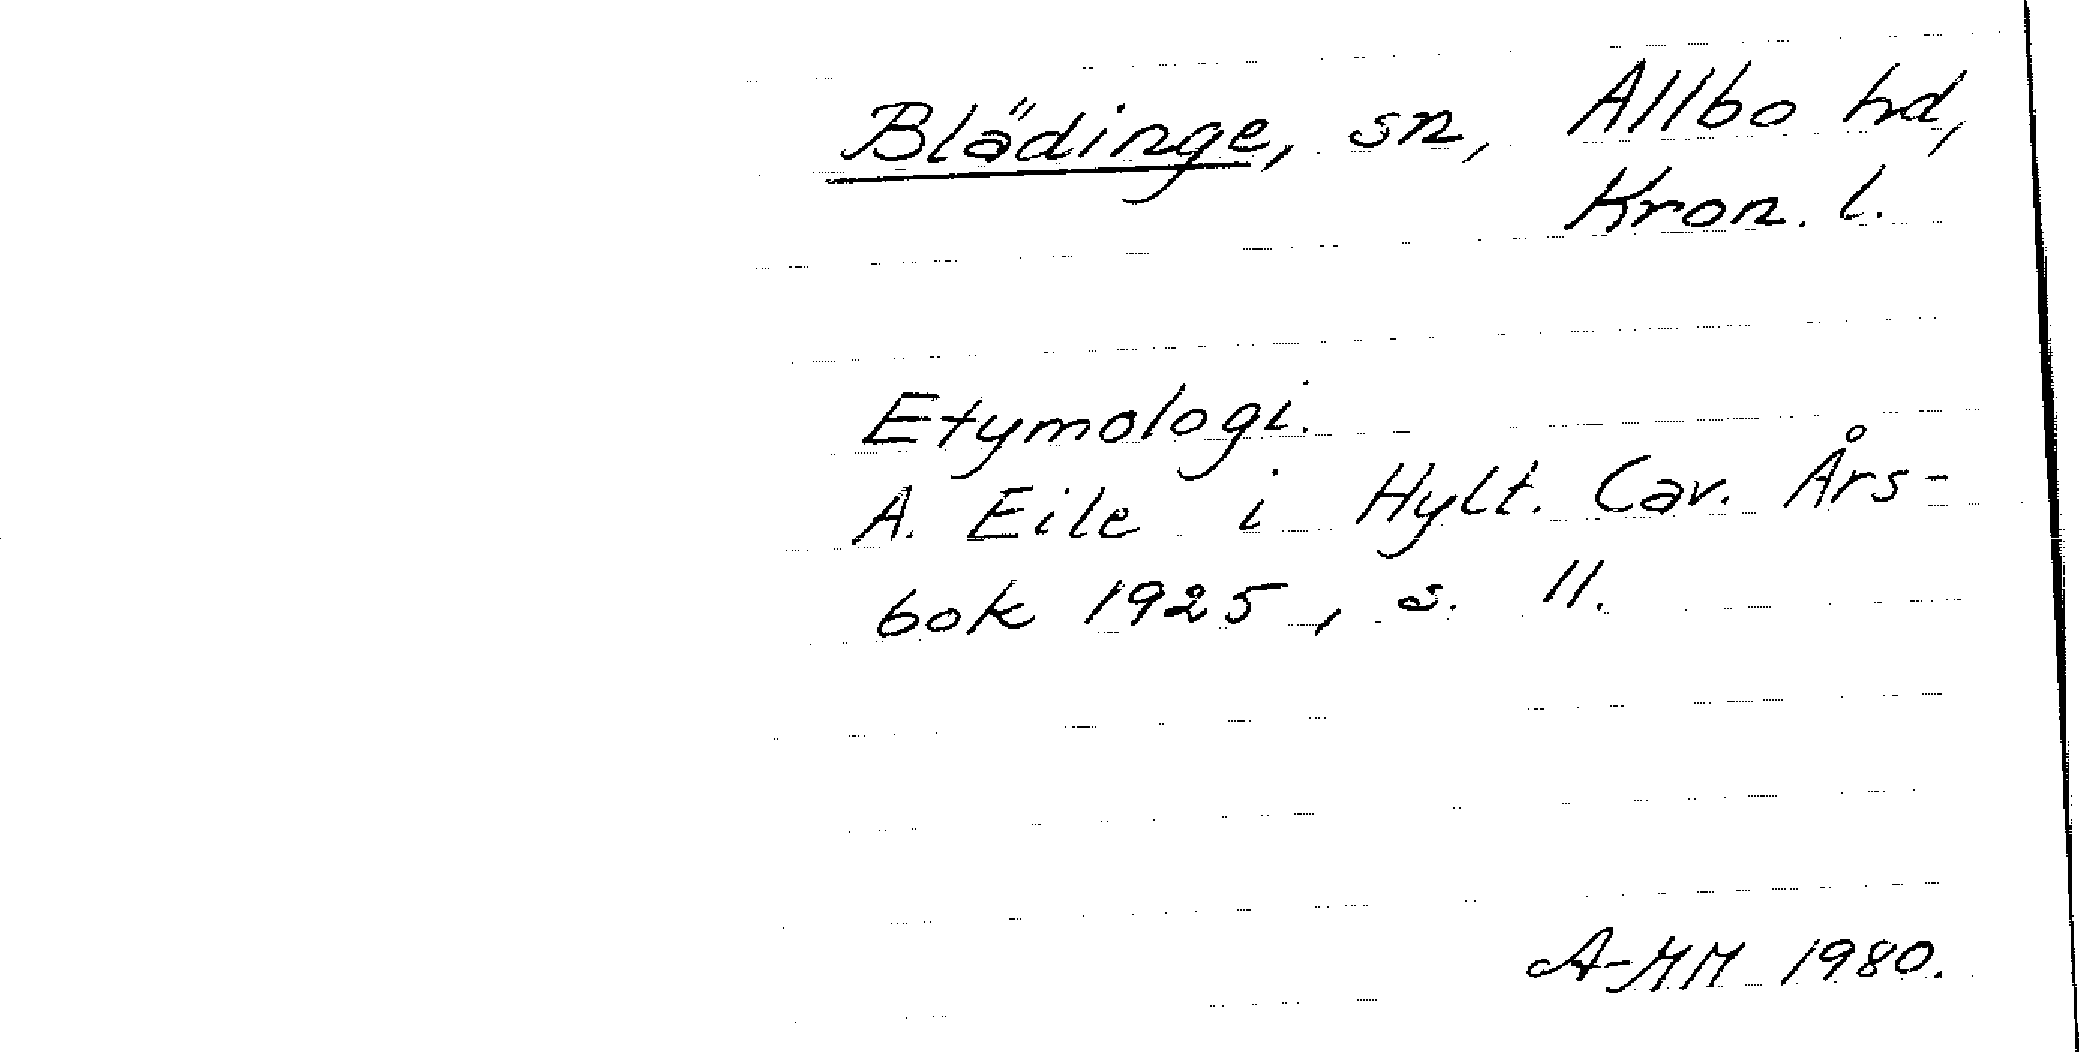 Blädinge, sn, Allbo hd,
Kron. l.
Etymologi.
A. Eile i Hylt. Cav. Års-
bok 1925, s. 11.
A-MM 1980.